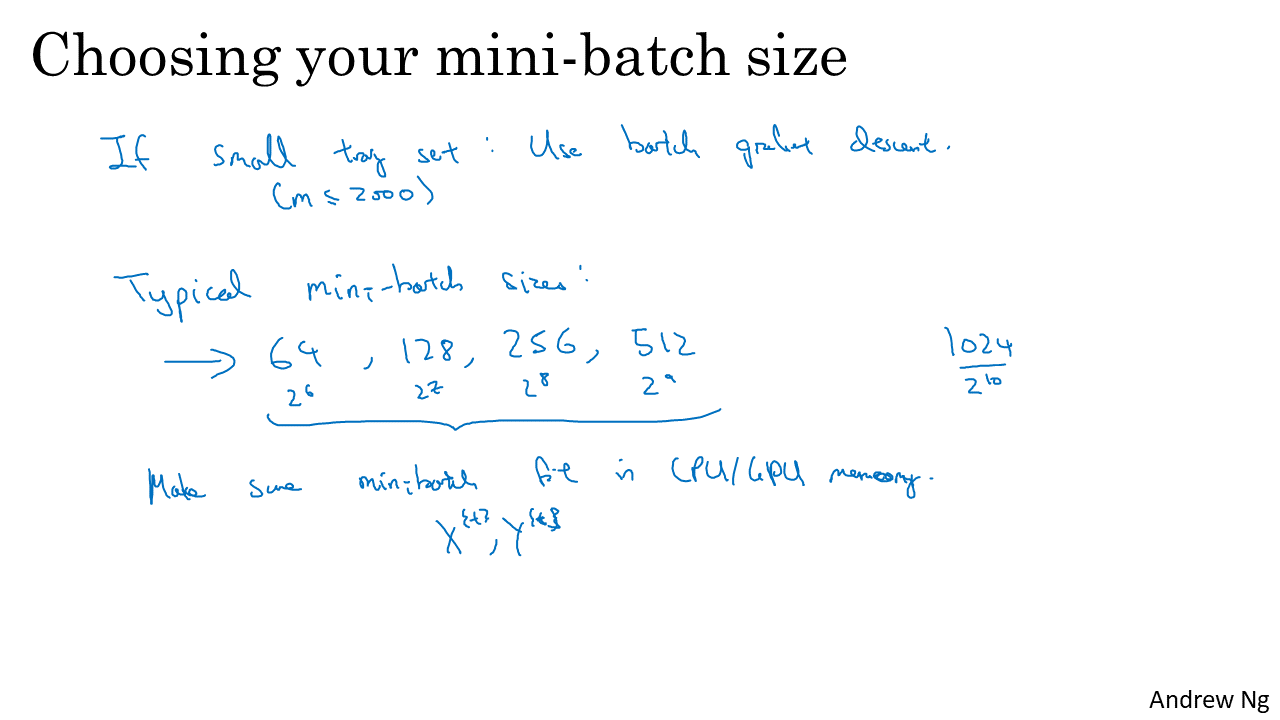 Choosing your mini-batch size
If small tray set : Use batch gradient descent.
(m ≤ 2000)
Typical mini-batch sizes:
→ 64 , 128, 256, 512 1024
2^6 2^7 2^8 2^9 2^10
Make sure minibatch fit in CPU/GPU memory.
X^{t}, Y^{t}
Andrew Ng